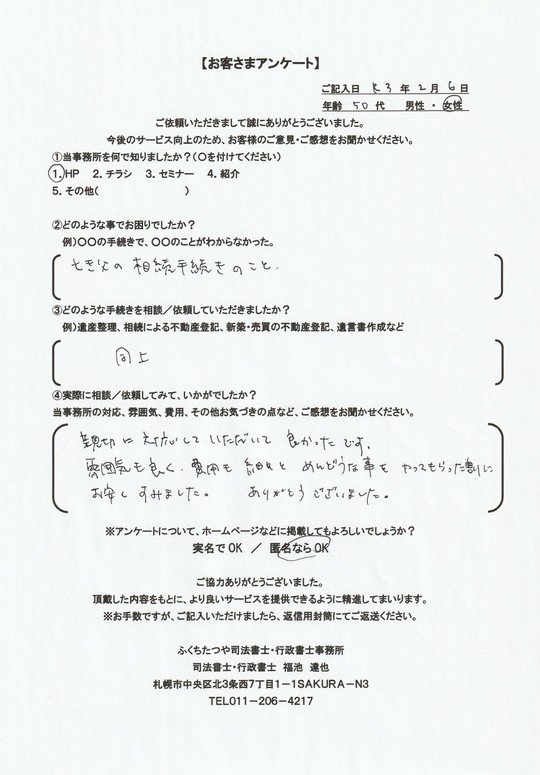 【お客さまアンケート】
ご記入日 R3 年 2 月 6 日
年齢 50 代 男性 ・ 女性
ご依頼いただきまして誠にありがとうございました。
今後のサービス向上のため、お客様のご意見・ご感想をお聞かせください。
①当事務所を何で知りましたか？（〇を付けてください）
1. HP 2. チラシ 3. セミナー 4. 紹介
5. その他( )
②どのような事でお困りでしたか？
例）〇〇の手続きで、〇〇のことがわからなかった。
亡き父の相続手続きのこと.
③どのような手続きを相談／依頼していただきましたか？
例）遺産整理、相続による不動産登記、新築・売買の不動産登記、遺言書作成など
同上
④実際に相談／依頼してみて、いかがでしたか？
当事務所の対応、雰囲気、費用、その他お気づきの点など、ご感想をお聞かせください。
親切に対応していただいて 良かったです。
雰囲気も良く、費用も 細々と めんどうな事を やってもらった割に
お安くすみました。 ありがとうございました。
※アンケートについて、ホームページなどに掲載してもよろしいでしょうか？
実名でOK ／ 匿名ならOK
ご協力ありがとうございました。
頂戴した内容をもとに、より良いサービスを提供できるように精進してまいります。
※お手数ですが、ご記入いただけましたら、返信用封筒にてご返送ください。
ふくちたつや司法書士・行政書士事務所
司法書士・行政書士 福池 達也
札幌市中央区北3条西7丁目1－1SAKURA－N3
TEL011－206－4217